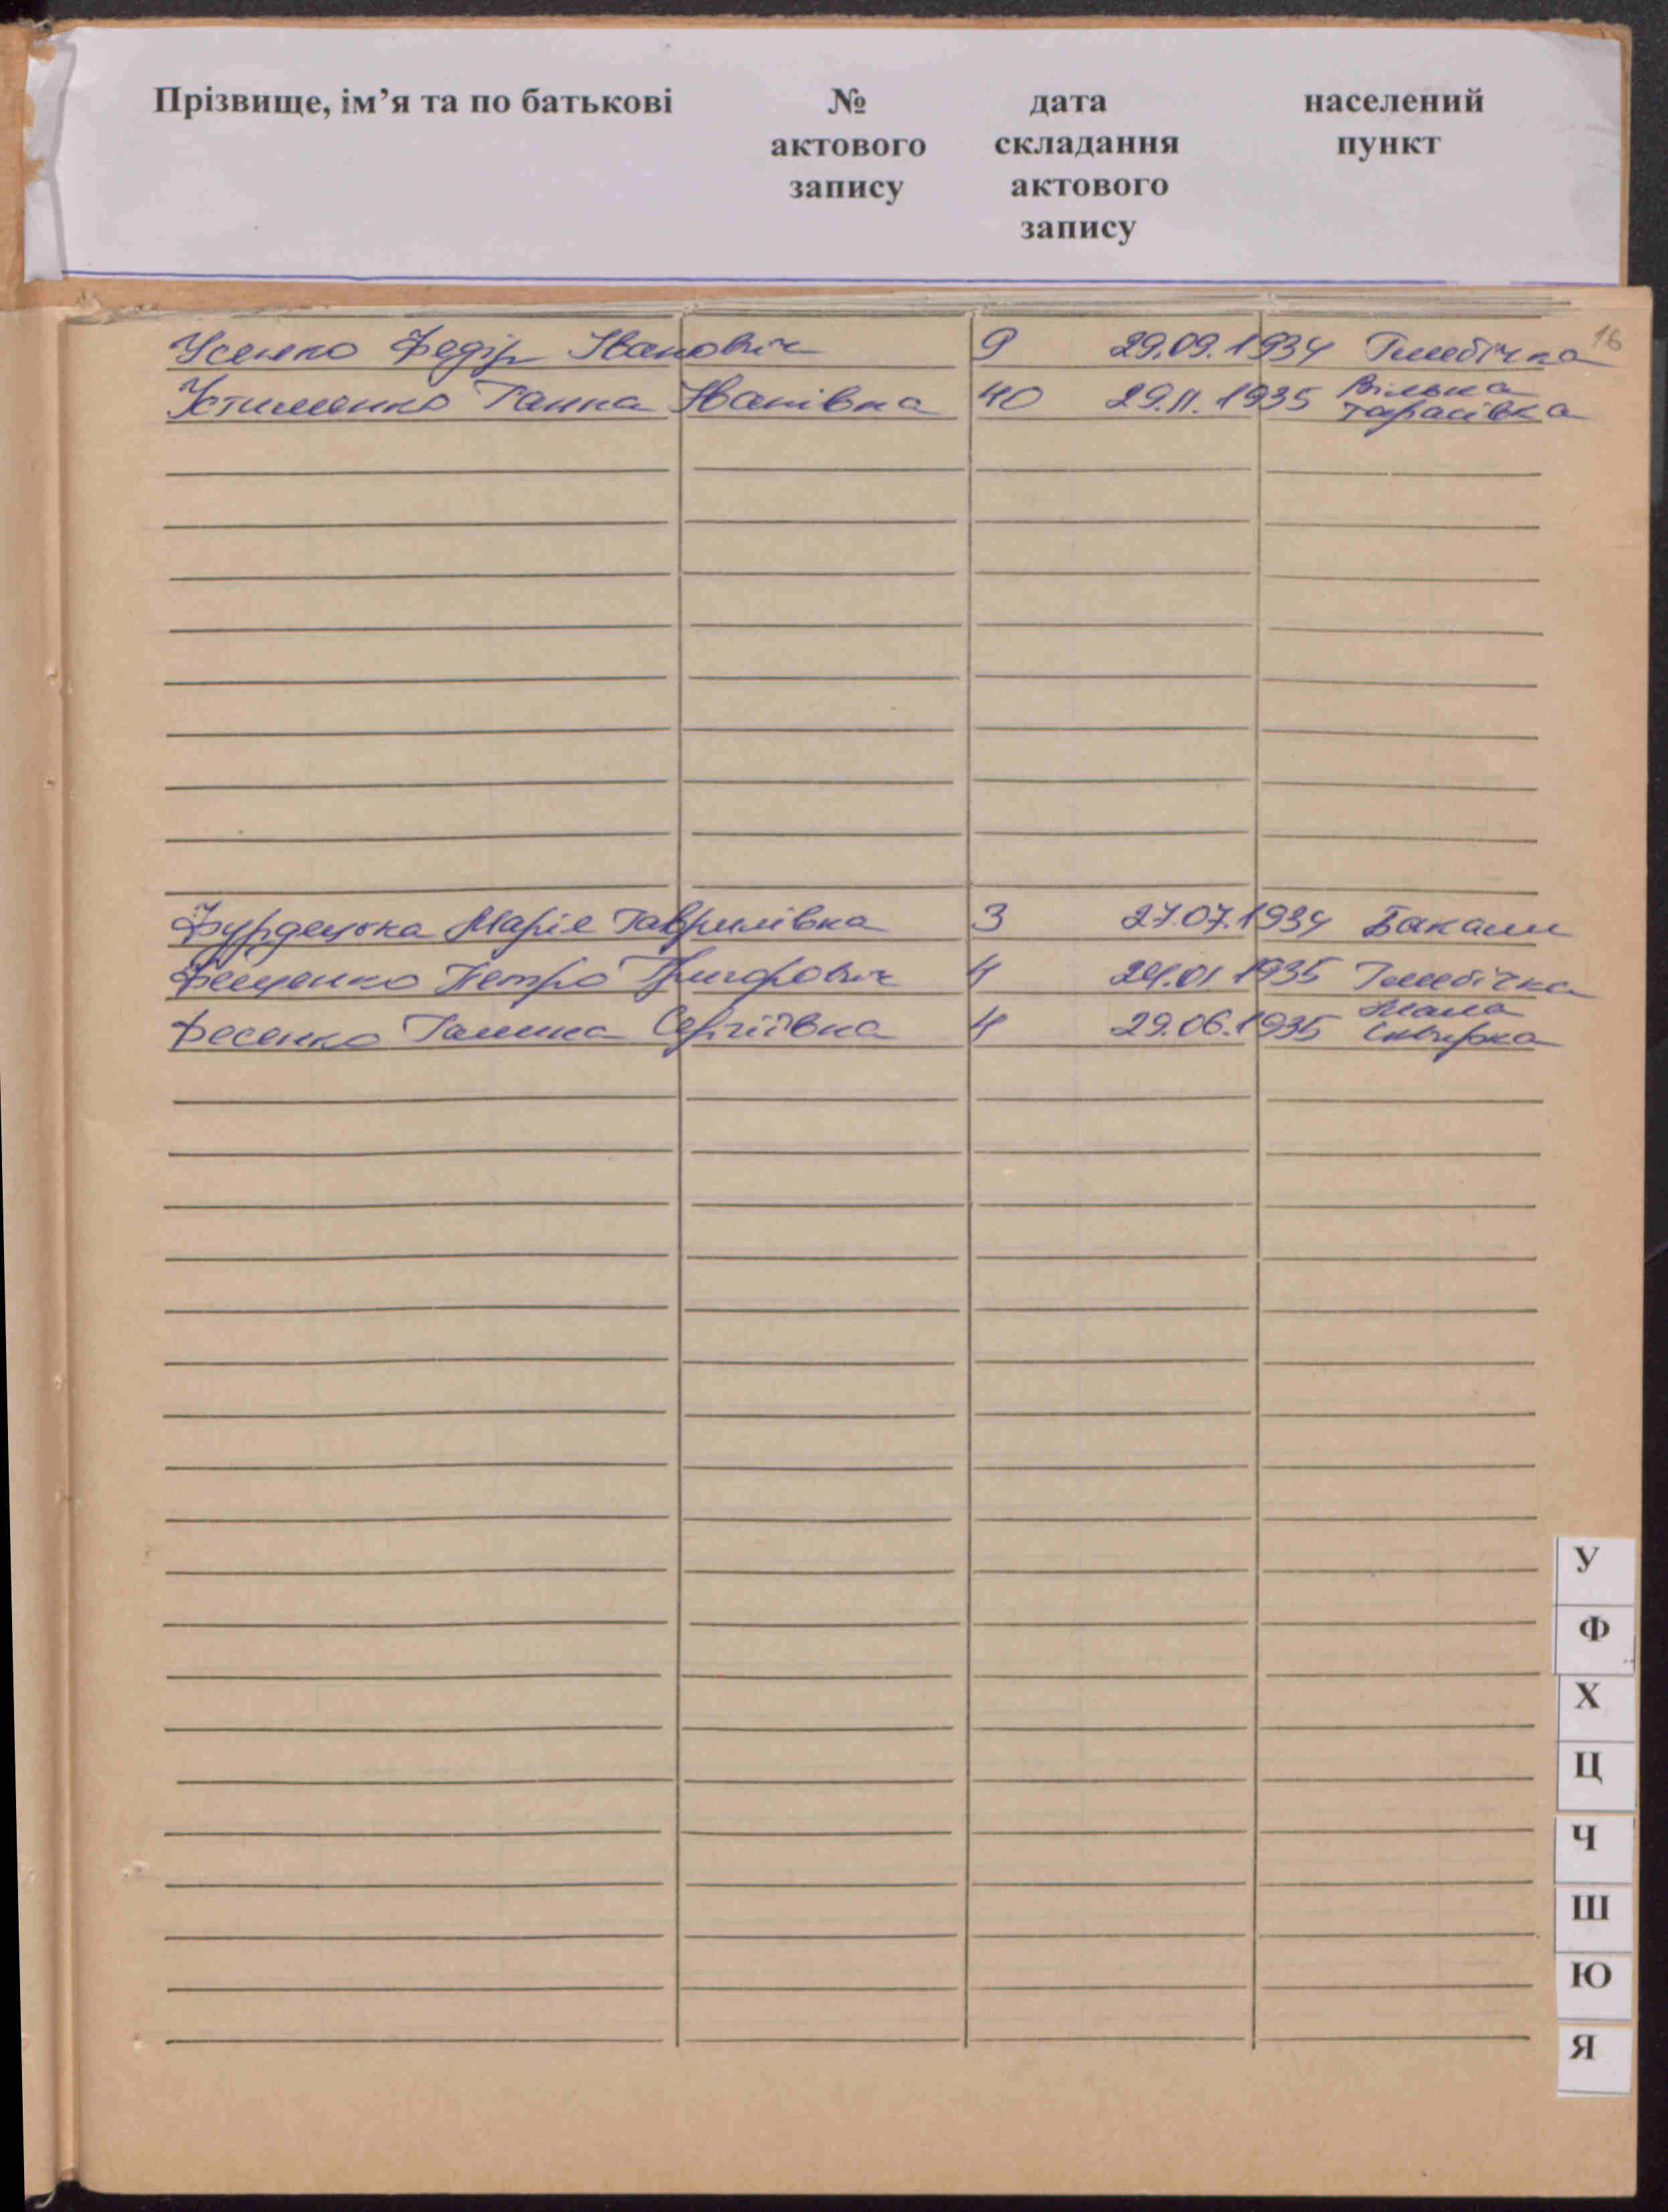 Прізвище, ім’я та по батькові № дата населений
актового складання пункт
запису актового
запису
16
Усенко Федір Іванович 9 29.09.1934 Глибічка
Устименко Ганна Іванівна 40 29.11.1935 Вільна
Тарасівка
Фурдецька Марія Гаврилівна 3 27.07.1934 Бакали
Фещенко Петро Григорович 4 24.01.1935 Глибічка
Фесенко Галина Сергіївна 4 29.06.1935 Мала
Сквирка
У
Ф
Х
Ц
Ч
Ш
Ю
Я